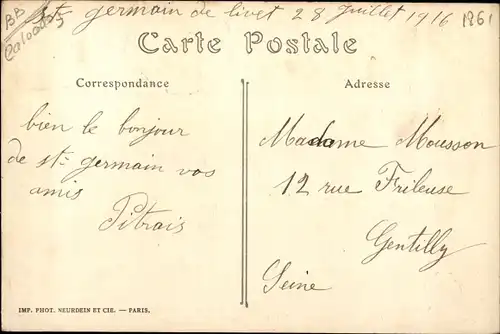 BB
Calvados
St germain de livet 28 Juillet 1916
1261
Carte Postale
Correspondance
Adresse
bien le bonjour
de St germain vos
amis
Madame Mousson
12 rue Frileuse
Gentilly
Seine
IMP. PHOT. NEURDEIN ET CIE. — PARIS.